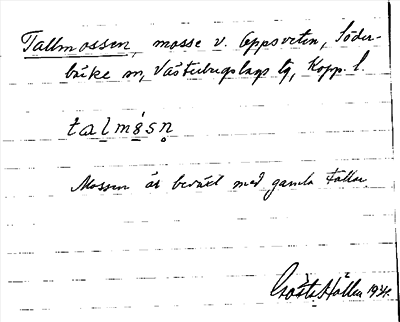 Tallmossen, mosse v. Oppsveten, Söder-
bärke sn, Västerbergslags tg, Kopp. l.
talmósn̥
Mossen är beväxt med gamla tallar
Gösta Hållen 1934.